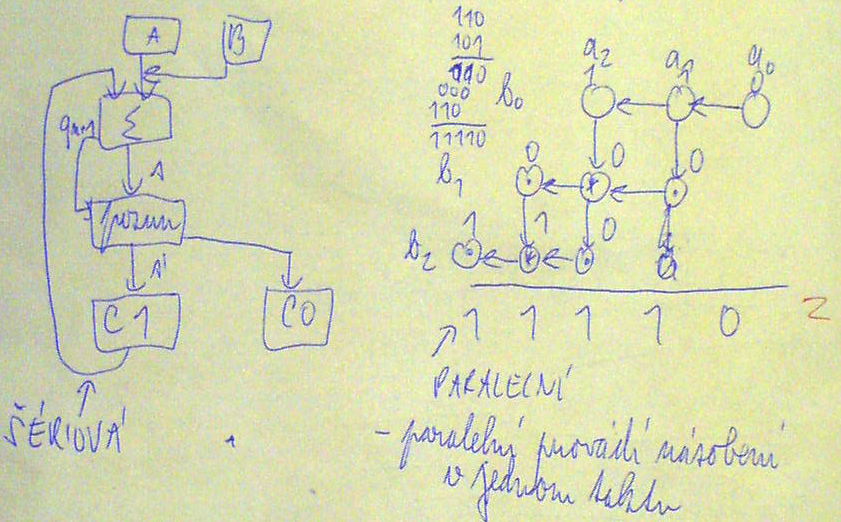 A
B
Σ
posun
C1
C0
ŠÉRIOVÁ
110
101
110
000
110
11110
a₂ a₁ a₀
1 1 0
b₀
0 0 0
b₁
1 1 0
b₂
1 1 1 1 0
2
PARALELNÍ
- paralelní provádí násobení
v jednom taktu